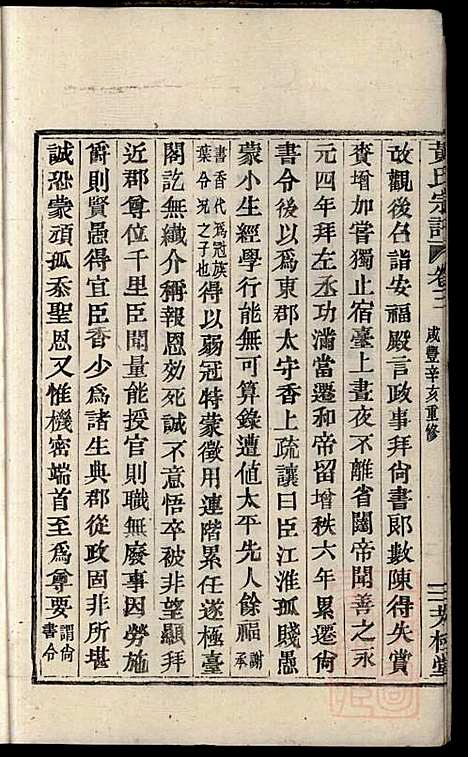 黃氏宗譜 卷三 咸豐辛亥重修
改觀後召詣安福殿言政事拜尙書郎數陳得失賞
賚增加嘗獨止宿臺上晝夜不離省闥帝聞善之永
元四年拜左丞功滿當遷和帝留增秩六年累遷尙
書令後以爲東郡太守香上疏讓曰臣江淮孤賤愚
蒙小生經學行能無可算錄遭値太平先人餘福謝承
書香代爲冠族葉令況之子也得以弱冠特蒙徵用連階累任遂極臺
閣訖無纖介稱報恩効死誠不意悟卒被非望顯拜
近郡尊位千里臣聞量能授官則職無廢事因勞施
爵則賢愚得宜臣香少爲諸生典郡從政固非所堪
誠恐蒙頑孤忝聖恩又惟機密端首至爲尊要謂尙書令